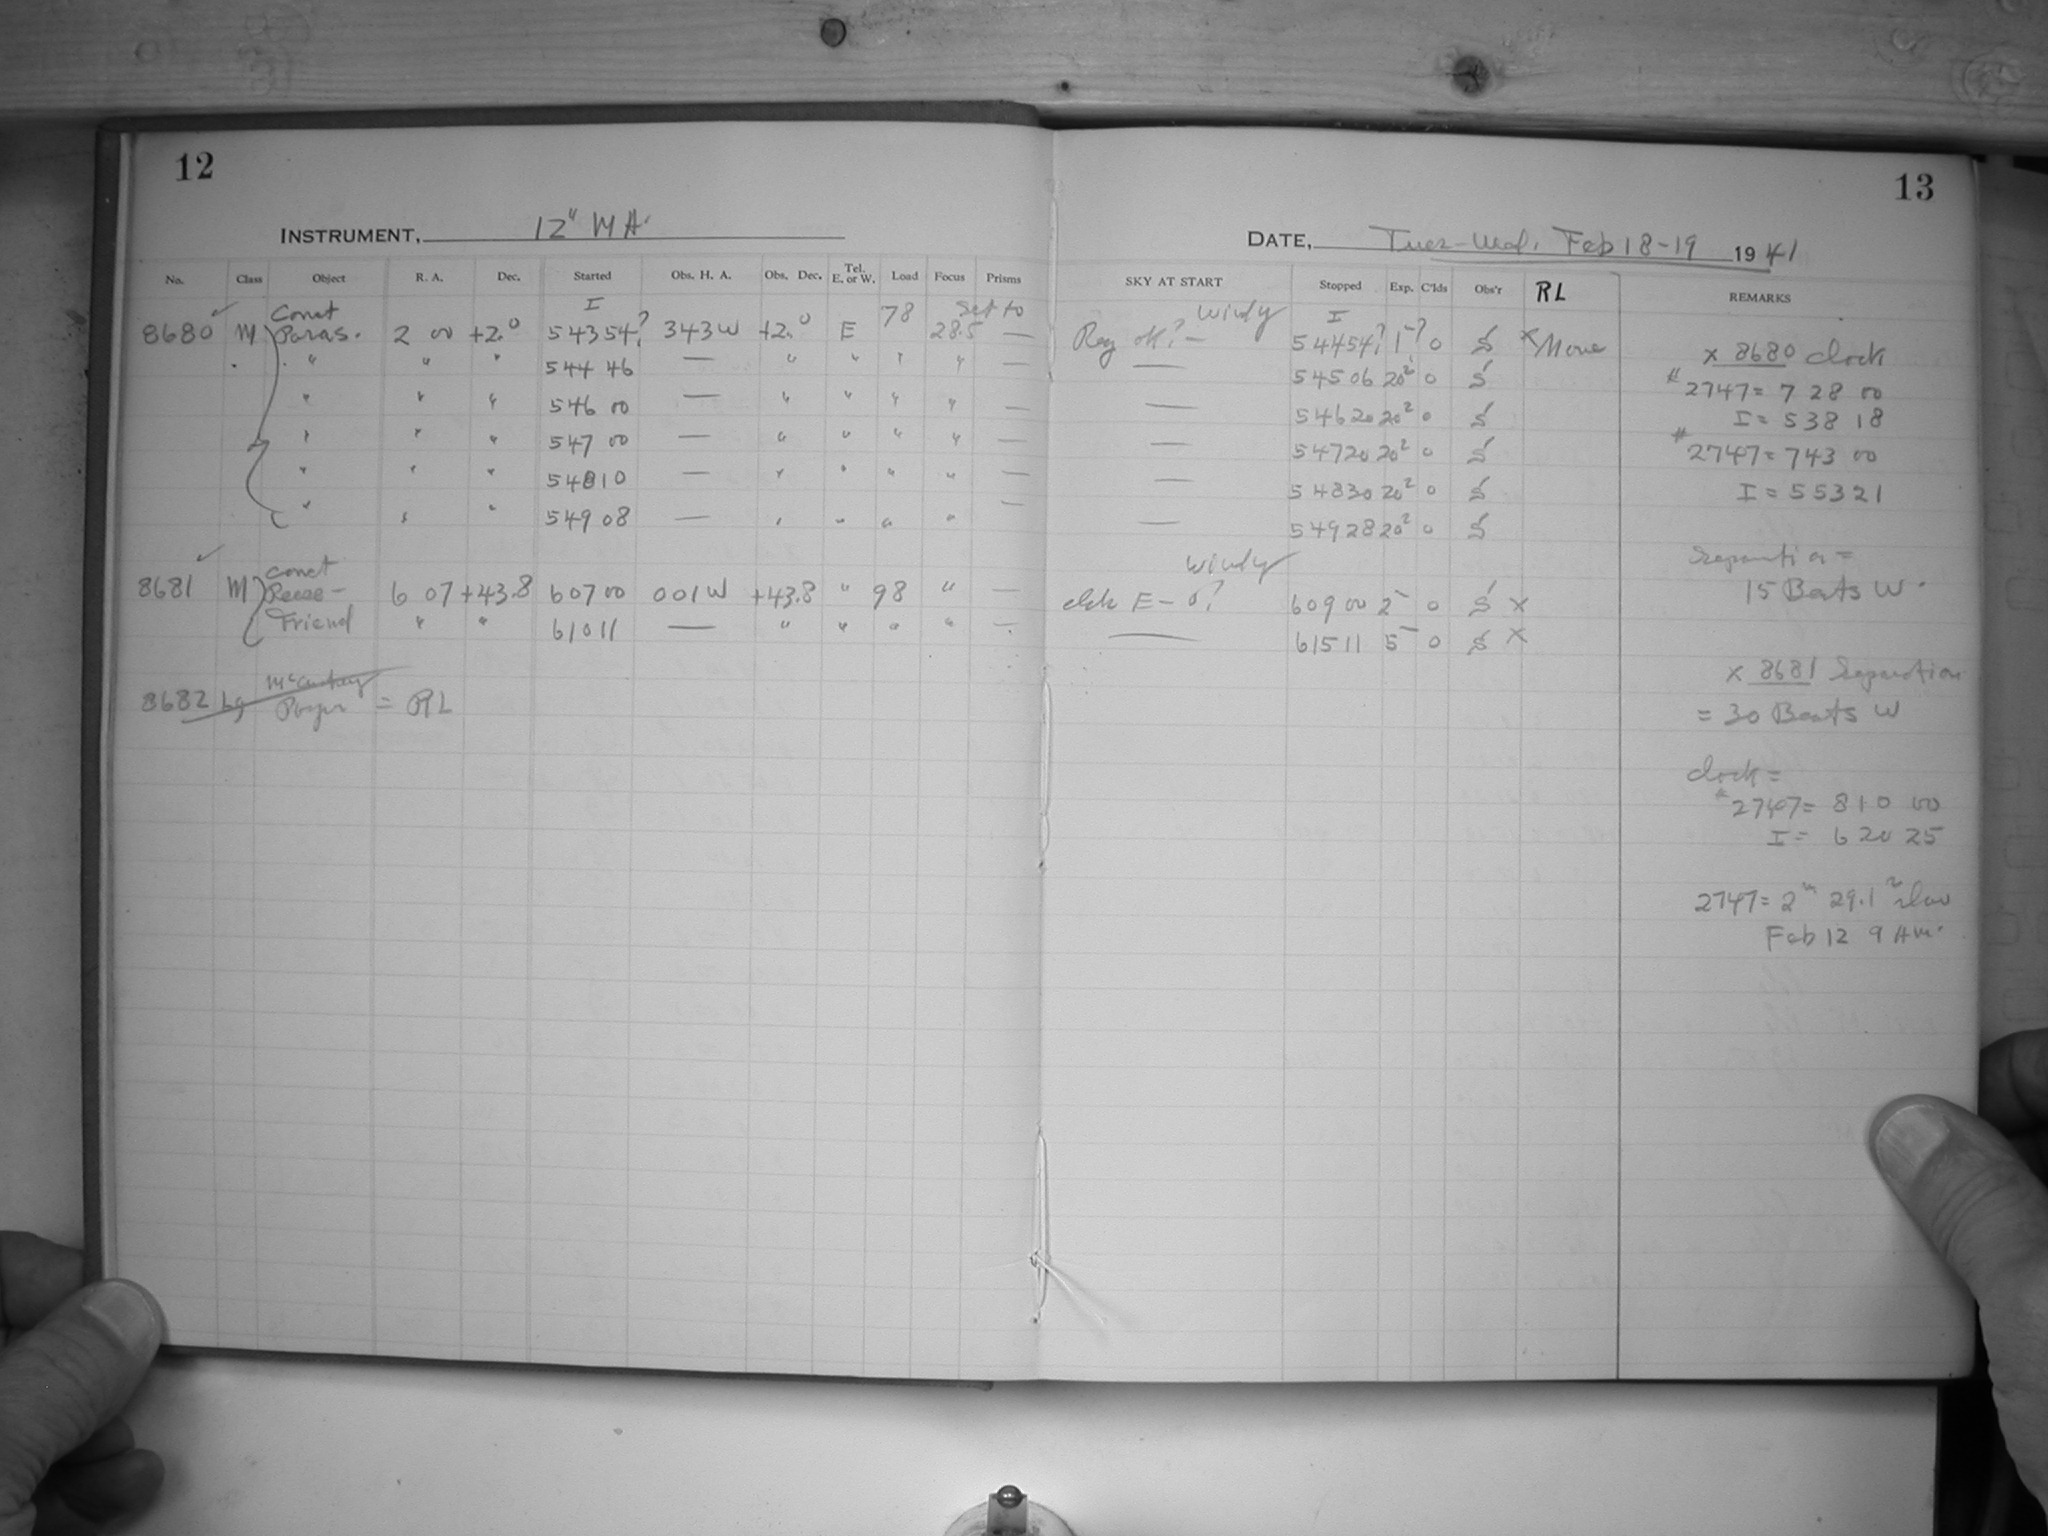 12
INSTRUMENT, 12" MA.
No. Class Object R. A. Dec. Started Obs. H. A. Obs. Dec. Tel. E. or W. Load Focus Prisms
I
8680 ✓ M Paras. 2 00 +2.0 54354? 343W +2.0 E 78 Set to 28.5 —
" " " 544 46 — " " " " —
" " " 546 00 — " " " " —
" " " 547 00 — " " " " —
" " " 54810 — " " " " —
" " " 549 08 — " " " " —
8681 ✓ M 6 07 +43.8 607 00 001W +43.8 " 98 " —
Friend " " 61011 — " " " " —
8682 Lg = RL
13
DATE, Tues-Wed. Feb 18-19 1941
SKY AT START Stopped Exp. C'lds Obs'r RL REMARKS
windy I
Reg ok? — 54454? 1-? 0 S x None
— 545 06 20² 0 S
— 546 20 20² 0 S
— 547 20 20² 0 S
— 548 30 20² 0 S
— 549 28 20² 0 S
windy
clk E – 0? 609 00 2- 0 S x
— 615 11 5- 0 S x
x 8680 clock
# 2747 = 7 28 00
I = 538 18
# 2747 = 743 00
I = 55321
Separation =
15 Beats W.
x 8681 Separation
= 30 Beats W
clock =
# 2747 = 810 00
I = 6 20 25
2747 = 2m 29.1s slow
Feb 12 9 AM.